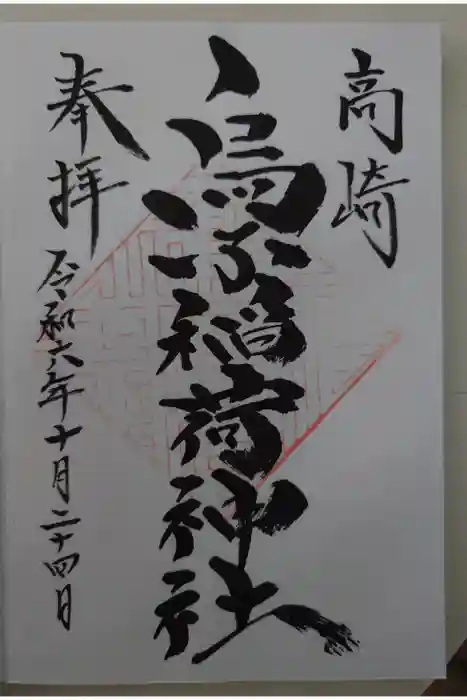 高崎
烏子稲荷神社
奉拝
令和六年十月二十四日